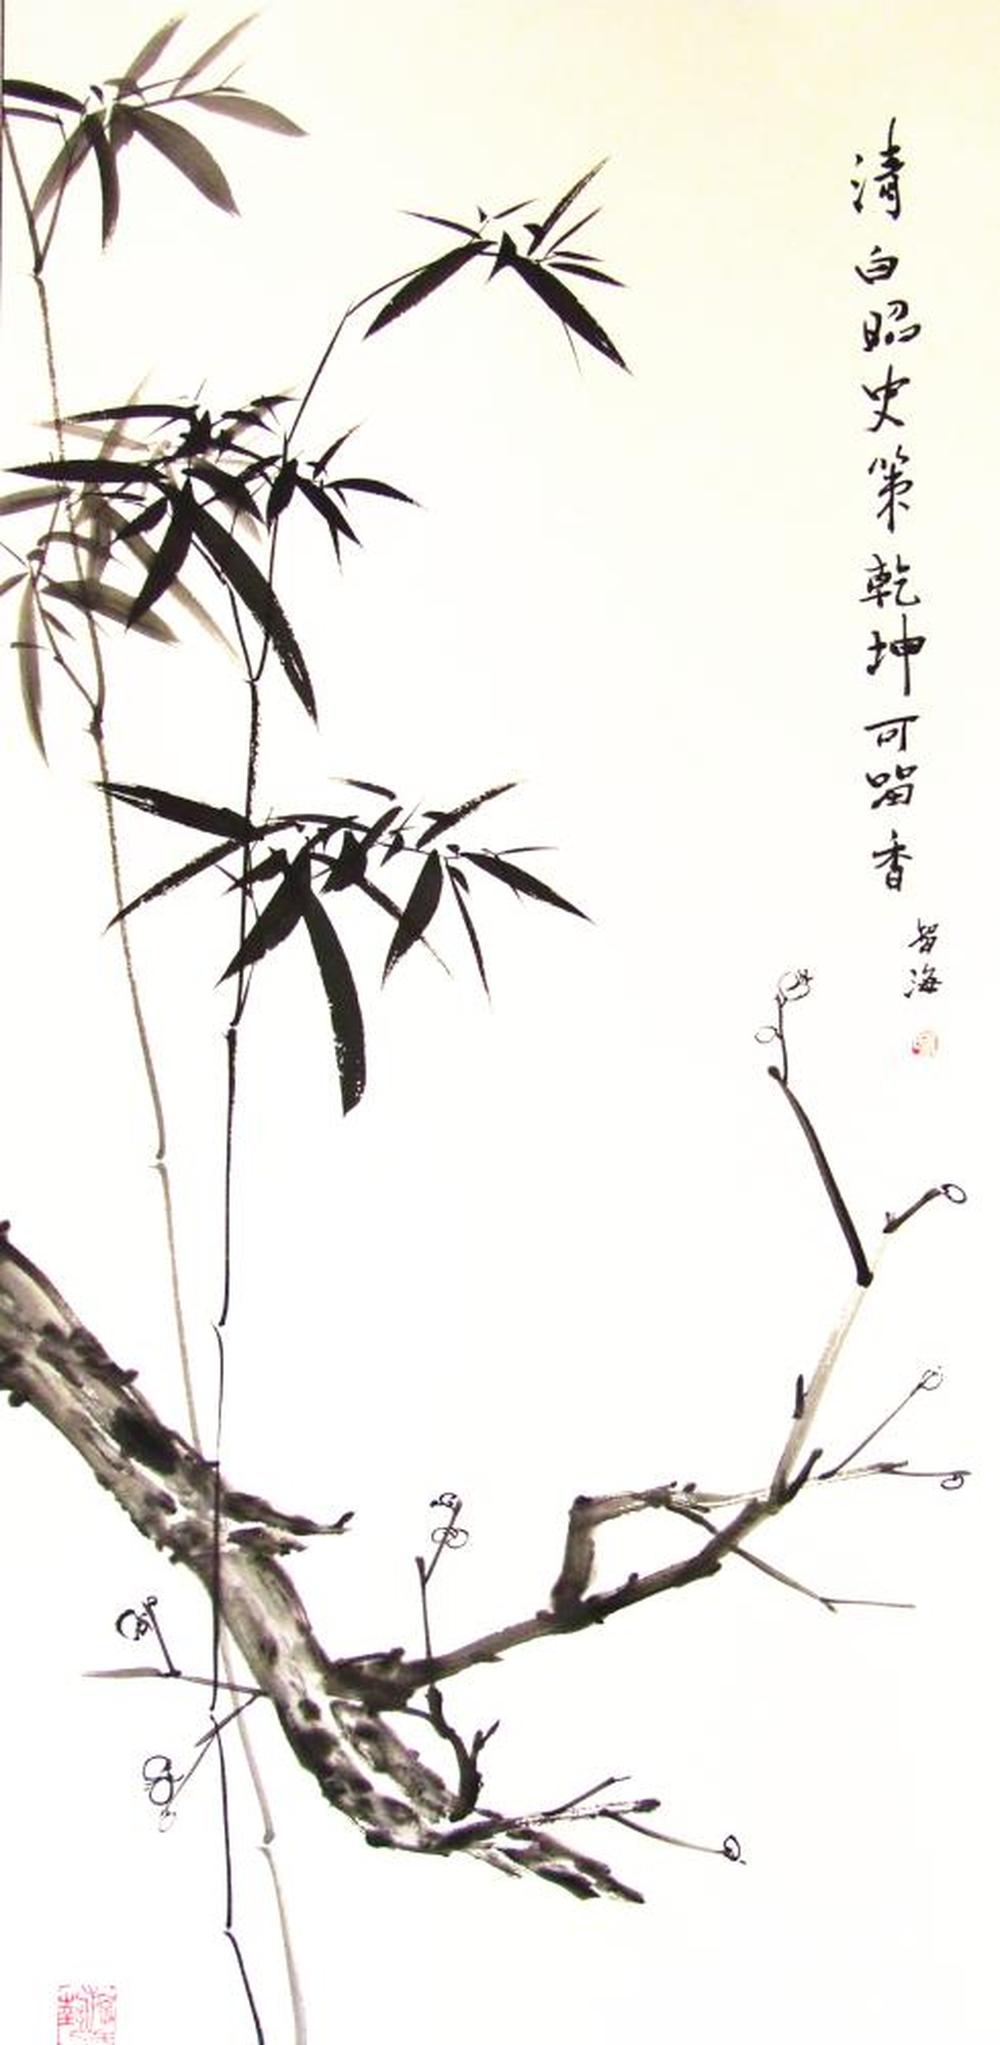 清白昭史策乾坤可留香
智海